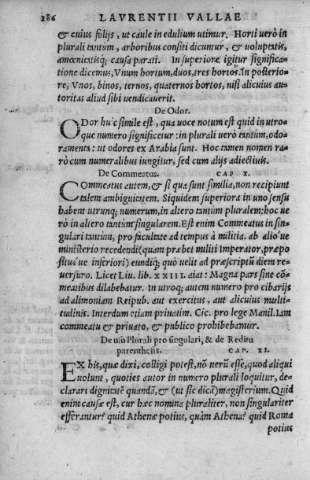 286 LAVRENTII VALLAE
& cuius folijs, ut caule in edulium utimur. Horti uerò in
plurali tantum, arboribus consiti dicuntur, & uoluptatis,
amœnitatisq; causa parati. In superiore igitur significa-
tione dicemus, Vnum hortum, duos, tres hortos. In posterio-
re, Vnos, binos, ternos, quaternos hortos, nisi alicuius au-
toritas aliud sibi uendicauerit.
De Odor.
ODor huic simile est, qua uoce notum est quid in utro-
que numero significetur: in plurali uerò tantum, odo-
ramenta: ut odores ex Arabia sunt. Hoc tamen nomen ra-
rò cum numeralibus iungitur, sed cum alijs adiectiuis.
De Commeatus. CAP. X.
COmmeatus autem, & si qua sunt similia, non recipiunt
talem ambiguitatem. Siquidem superiora in uno sensu
habent utrunq; numerum, in altero tantum pluralem: hoc ue
rò in altero tantum singularem. Est enim Commeatus in sin-
gulari tantum, pro facultate ad tempus à militia, ab alio ue
ministerio recedendi (quam præbet militi Imperator, præpo
situs ue inferiori) eundiq; quò uelit ad præscriptũ diem re-
uersuro. Licet Liu. lib. XXIII. aiat: Magna pars sine cõ-
meatibus dilabebatur. In utroq; autem numero pro cibarijs
ad alimoniam Reipub. aut exercitus, aut alicuius multi-
tudinis. Interdum etiam priuatim. Cic. pro lege Manil. Iam
commeatu & priuato, & publico prohibebamur.
De usu Plurali pro singulari, & de Reditia
parenthesis. CAP. XI.
EX his, quæ dixi, colligi potest, nõ uerũ esse, quod aliqui
uolunt, quoties autor in numero plurali loquitur, de-
clarari dignitatẽ quandã, & (ut sic dicã) magisterium. Quid
enim causæ est, cur hæc nomina pluraliter, non singulariter
efferantur? quid Athenæ potius, quàm Athena? quid Roma
potius